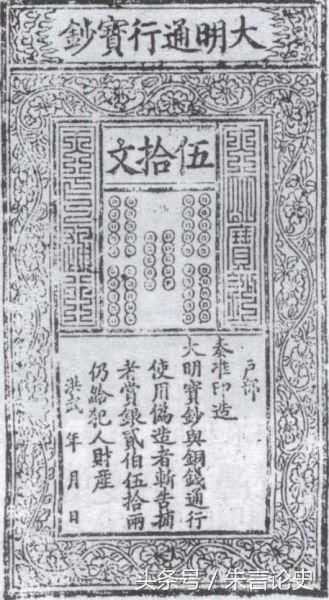 大明通行寶鈔
伍拾文
大明寶鈔
天下通行
户部
奏准印造
大明寶鈔與銅錢通行
使用偽造者斬告捕
者賞銀貳伯伍拾兩
仍給犯人財産
洪武 年 月 日
头条号 / 朱言论史